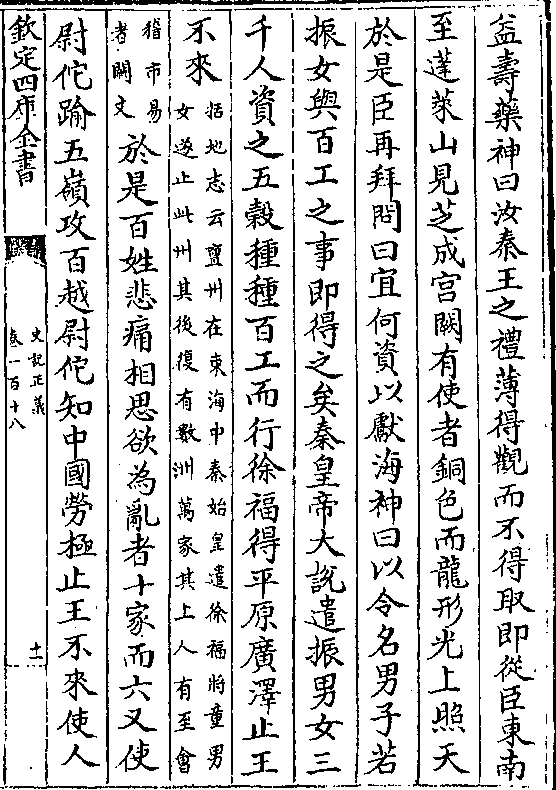 益壽藥神曰汝秦王之禮薄得觀而不得取即從臣東南
至蓬萊山見芝成宫闕有使者銅色而龍形光上照天
於是臣再拜問曰宜何資以獻海神曰以令名男子若
振女與百工之事即得之矣秦皇帝大說遣振男女三
千人資之五穀種種百工而行徐福得平原廣澤止王
不來
括地志云亶州在東海中秦始皇遣徐福將童男
女遂止此州其後復有數洲萬家其上人有至會
稽市易
者闕文
於是百姓悲痛相思欲為亂者十家而六又使
尉佗踰五嶺攻百越尉佗知中國勞極止王不來使人
欽定四庫全書
史記正義
卷一百十八
十一